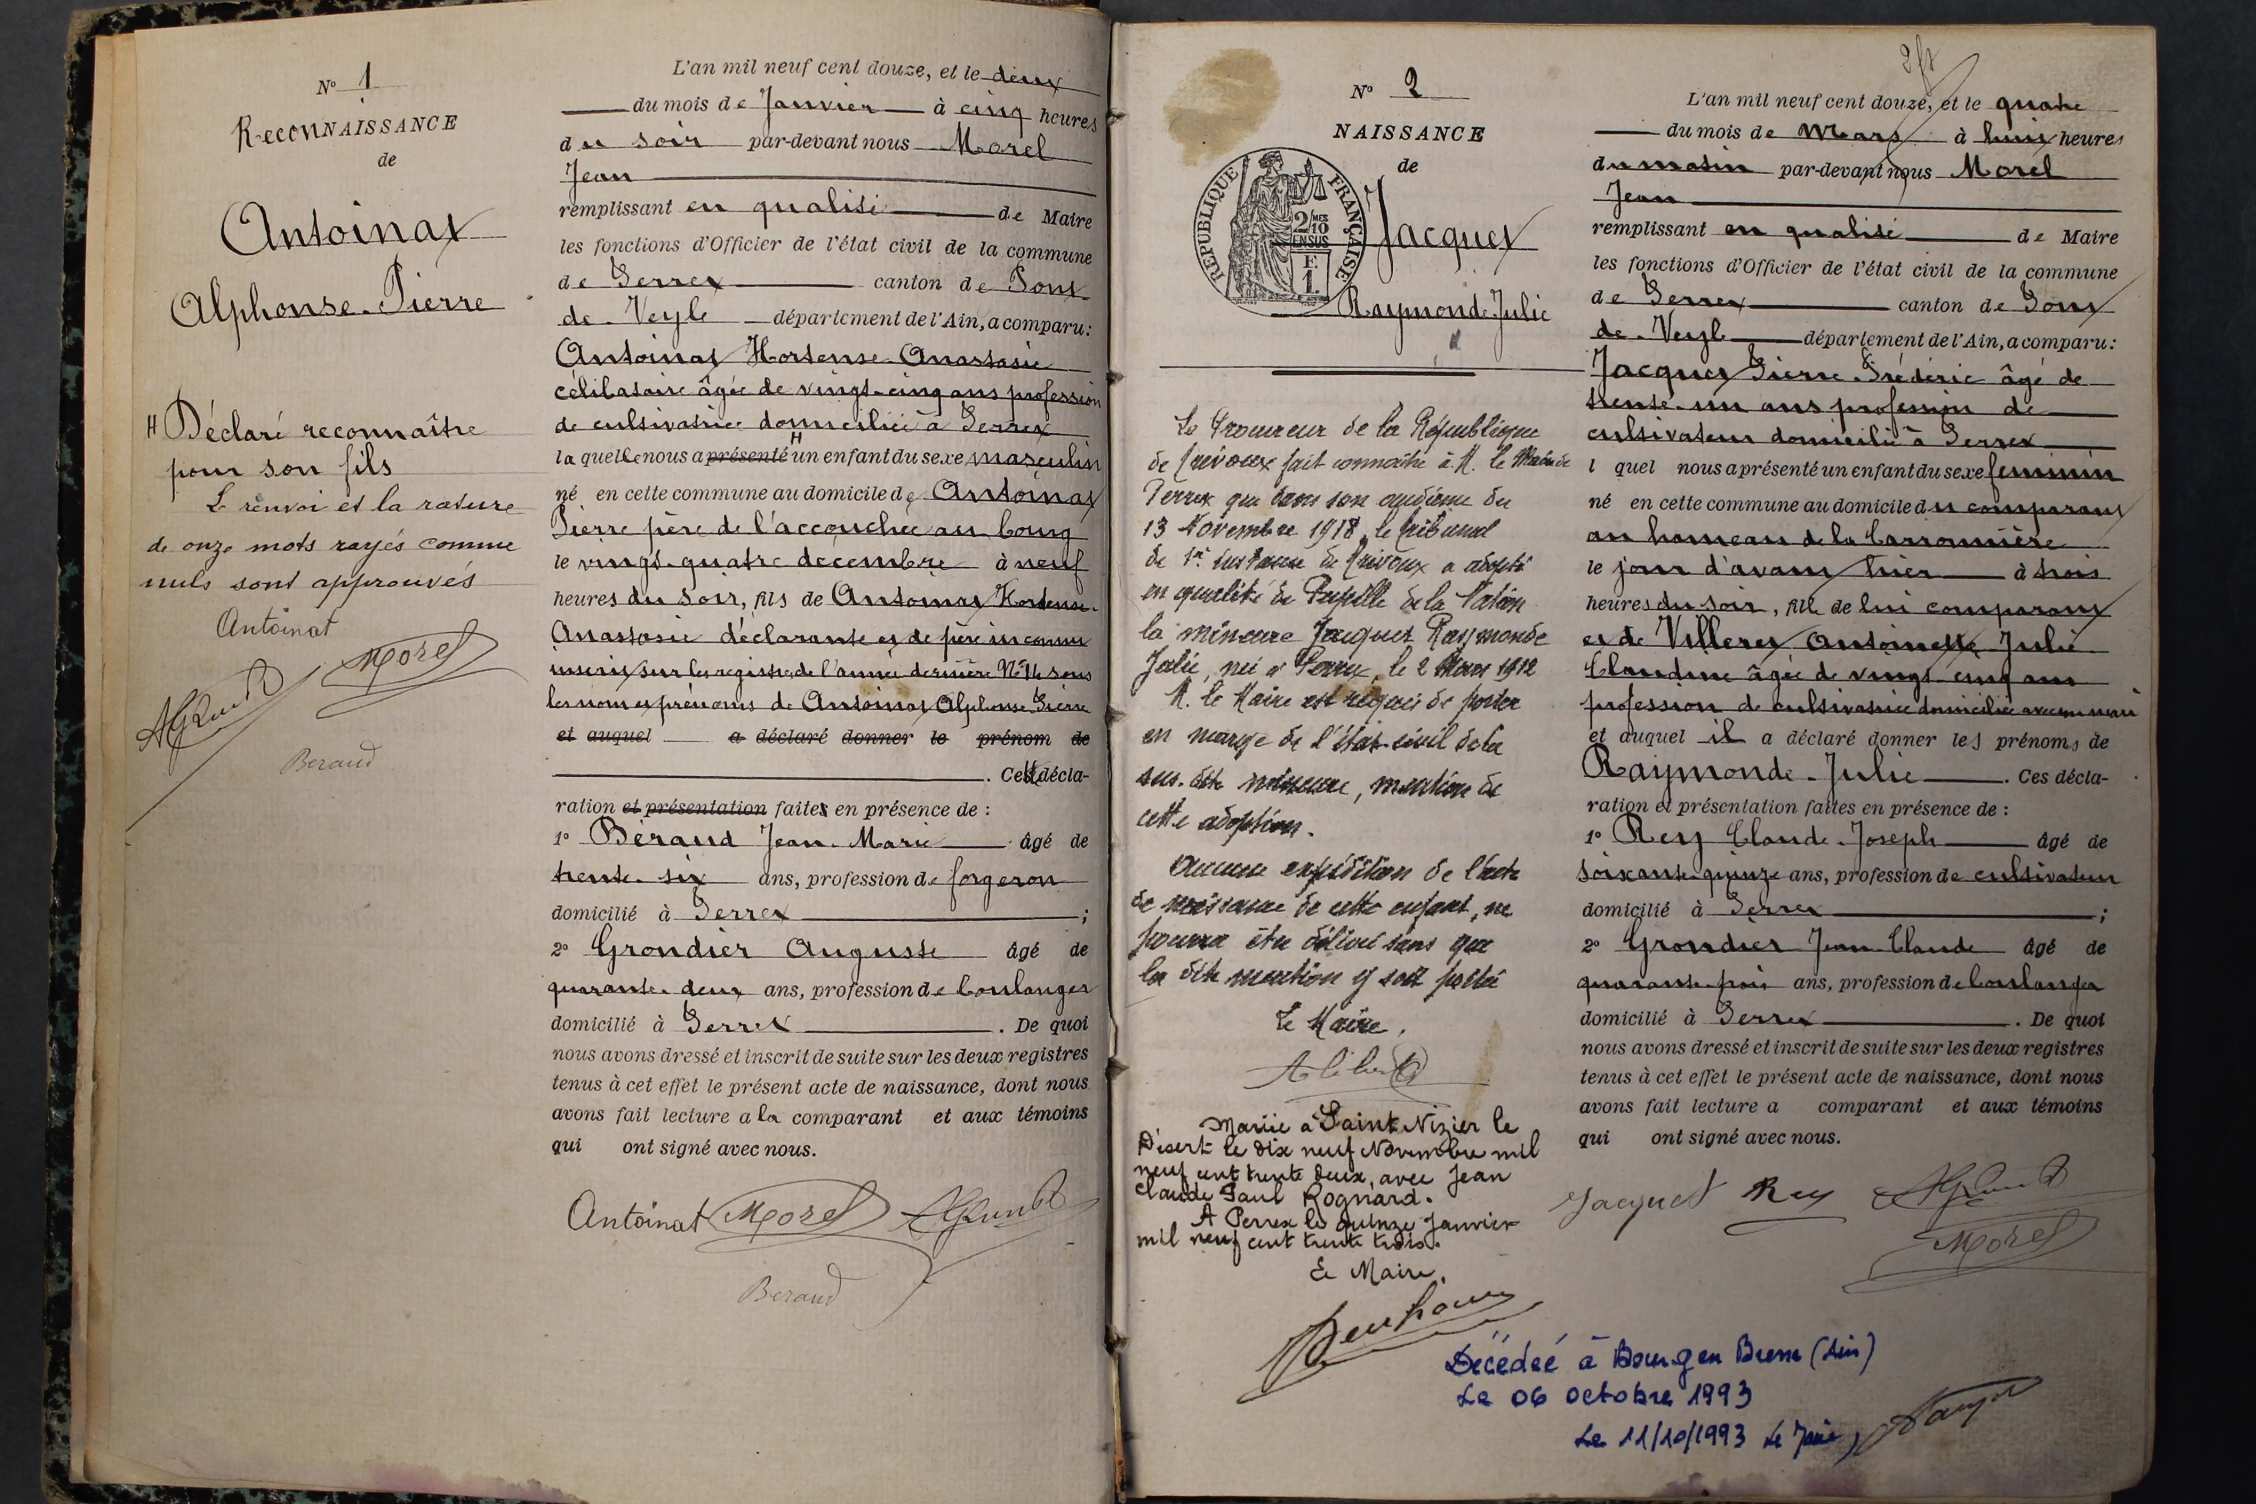 N° 1
RecoNNAISSANCE
de
Antoinat
Alphonse-Pierre
H Déclaré reconnaître
pour son fils
Le renvoi et la rature
de onze mots rayés comme
nuls sont approuvés
Antoinat
Morel
AGrundi
Beraud
L'an mil neuf cent douze, et le deux
du mois de Janvier à cinq heures
du soir par-devant nous Morel
Jean
remplissant en qualité de Maire
les fonctions d'Officier de l'état civil de la commune
de Perrex canton de Pont
de-Veyle département de l'Ain, a comparu:
Antoinat Hortense-Anastasie
célibataire âgée de vingt-cinq ans profession
de cultivatrice domiciliée à Perrex
laquelle nous a présenté H un enfant du sexe masculin
né en cette commune au domicile de Antoinat
Pierre père de l'accouchée au bourg
le vingt-quatre décembre à neuf
heures du soir, fils de Antoinat Hortense-
Anastasie déclarante et de père inconnu
inscrit sur les registres de l'année dernière N° 14 sous
les nom et prénoms de Antoinat Alphonse-Pierre
et auquel a déclaré donner le prénom de
. Cette décla-
ration et présentation faites en présence de :
1° Béraud Jean-Marie âgé de
trente-six ans, profession de forgeron
domicilié à Perrex ;
2° Grondier Auguste âgé de
quarante-deux ans, profession de boulanger
domicilié à Perrex . De quoi
nous avons dressé et inscrit de suite sur les deux registres
tenus à cet effet le présent acte de naissance, dont nous
avons fait lecture a la comparant et aux témoins
qui ont signé avec nous.
Antoinat Morel
Beraud
N° 2
NAISSANCE
de
RÉPUBLIQUE FRANÇAISE
2/10 MES
EN SUS
F.
1.
Jacquet
Raymonde-Julie
Le Procureur de la République
de Trévoux fait connaître à M. le Maire de
Perrex que dans son audience du
13 Novembre 1918, le tribunal
de 1re instance de Trévoux a adopté
en qualité de Pupille de la Nation
la mineure Jacquet Raymonde
Julie, née à Perrex, le 2 Mars 1912
M. le Maire est requis de porter
en marge de l'état-civil de la
sus-dite mineure, mention de
cette adoption.
Aucune expédition de l'acte
de naissance de cette enfant, ne
pourra être délivré sans que
la dite mention y soit portée
Le Maire,
Mariée à Saint Nizier le
Désert le dix neuf Novembre mil
neuf cent trente deux, avec Jean
Claude Paul Rognard.
A Perrex le quinze Janvier
mil neuf cent trente trois.
Le Maire.
L'an mil neuf cent douze, et le quatre
du mois de Mars à huit heures
du matin par-devant nous Morel
Jean
remplissant en qualité de Maire
les fonctions d'Officier de l'état civil de la commune
de Perrex canton de Pont
de-Veyle département de l'Ain, a comparu:
Jacquet Pierre-Frédéric âgé de
trente-un ans profession de
cultivateur domicilié à Perrex
l quel nous a présenté un enfant du sexe feminin
né en cette commune au domicile du comparant
au hameau de la Carronnière
le jour d'avant hier à trois
heures du soir, fille de lui comparant
et de Villeret Antoinette Julie
Claudine âgée de vingt-cinq ans
profession de cultivatrice domiciliée avec son mari
et auquel il a déclaré donner les prénoms de
Raymonde-Julie . Ces décla-
ration et présentation faites en présence de :
1° Rey Claude-Joseph âgé de
soixante-quinze ans, profession de cultivateur
domicilié à Perrex ;
2° Grondier Jean Claude âgé de
quarante-trois ans, profession de boulanger
domicilié à Perrex . De quoi
nous avons dressé et inscrit de suite sur les deux registres
tenus à cet effet le présent acte de naissance, dont nous
avons fait lecture a comparant et aux témoins
qui ont signé avec nous.
Jacquet Rey
Morel
Décédée à Bourg en Bresse (Ain)
Le 06 octobre 1993
Le 11/10/1993 Le Maire,